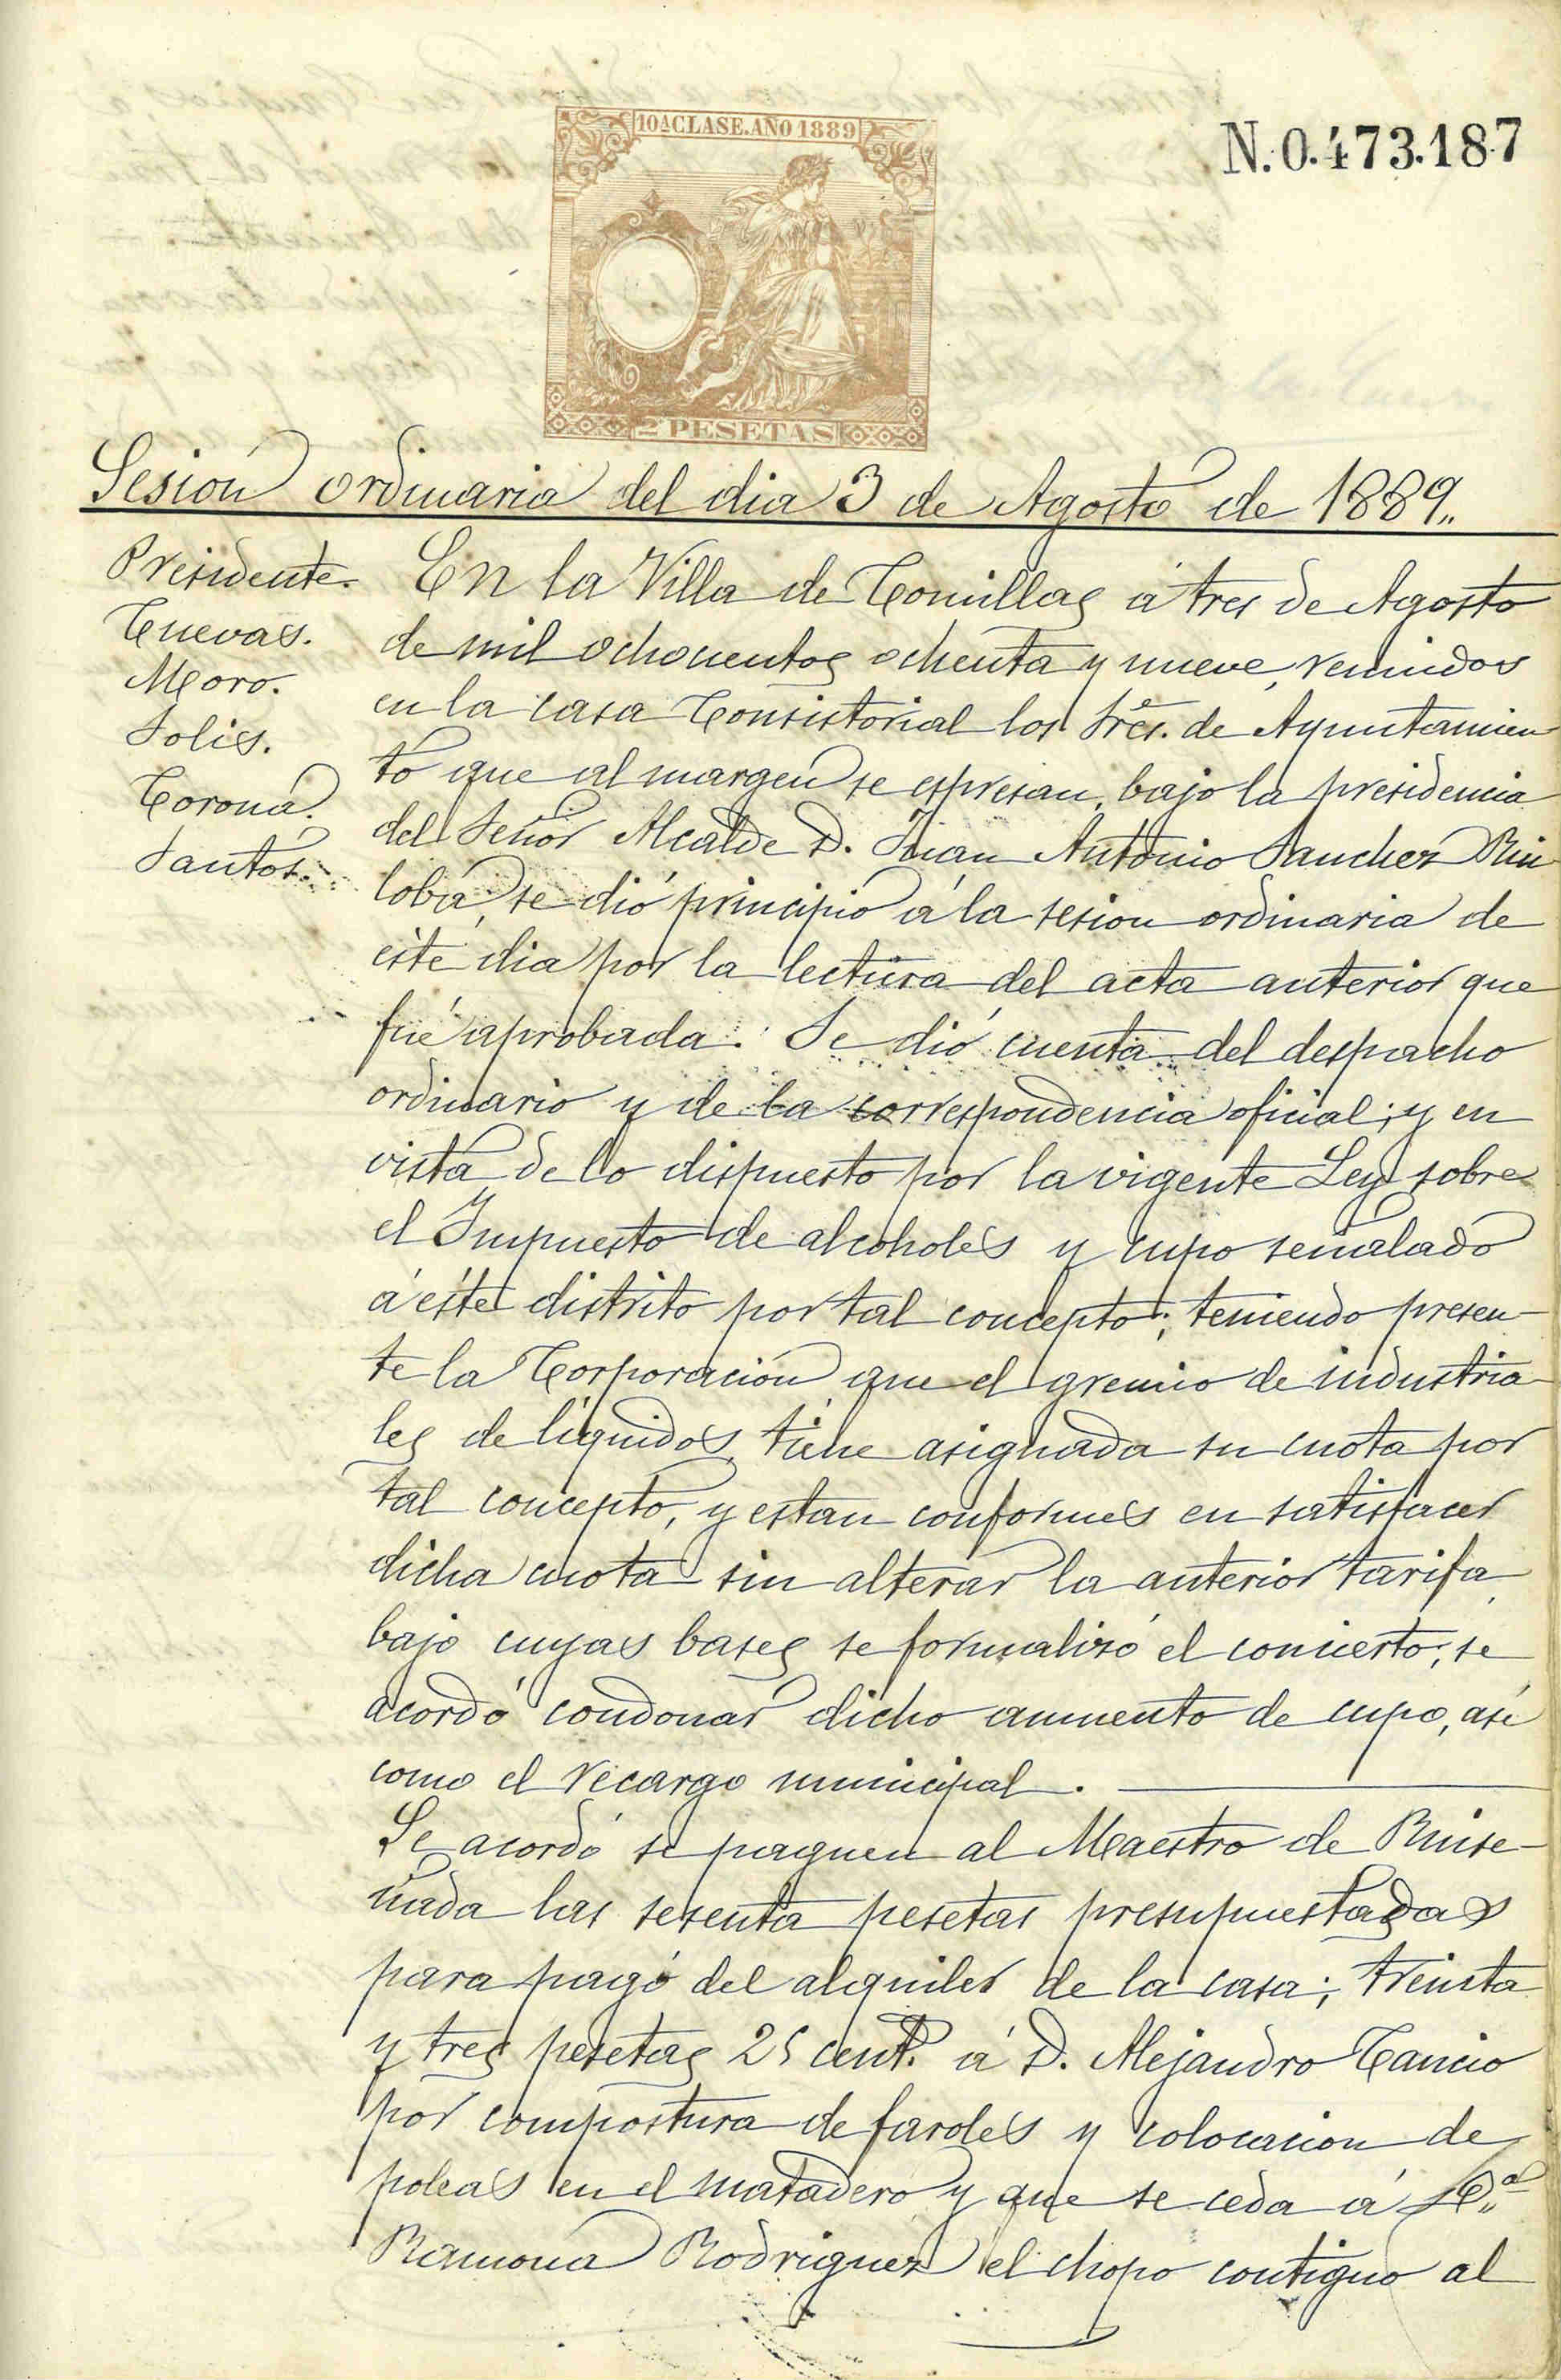 10ª CLASE. AÑO 1889
N. 0.473.187
2 PESETAS
Sesión ordinaria del dia 3 de Agosto de 1889,,
Presidente.
Cuevas.
Moro.
Solis.
Corona.
Santos.
En la Villa de Comillas á tres de Agosto
de mil ochocientos ochenta y nueve, reunidos
en la casa Consistorial los Sres. de Ayuntamien
to que al margen se espresan, bajo la presidencia
del Señor Alcalde D. Juan Antonio Sanchez Rui
loba, se dió principio á la sesion ordinaria de
éste dia por la lectura del acta anterior que
fué aprobada. Se dió cuenta del despacho
ordinario y de la correspondencia oficial; y en
vista de lo dispuesto por la vigente Ley sobre
el Impuesto de alcoholes y cupo señalado
á éste distrito por tal concepto; teniendo presen-
te la Corporación que el gremio de industria-
les de líquidos, tiene asignada su cuota por
tal concepto, y estan conformes en satisfacer
dicha cuota sin alterar la anterior tarifa,
bajo cuyas bases se formalizó el concierto; se
acordó condonar dicho aumento de cupo, asi
como el recargo municipal.
Se acordó se paguen al Maestro de Ruise-
ñada las sesenta pesetas presupuestadas
para pago del alquiler de la casa; treinta
y tres pesetas 25 cent.s á D. Alejandro Cancio
por compostura de faroles y colocacion de
poleas en el matadero y que se ceda á D.ª
Ramona Rodriguez el chopo contiguo al